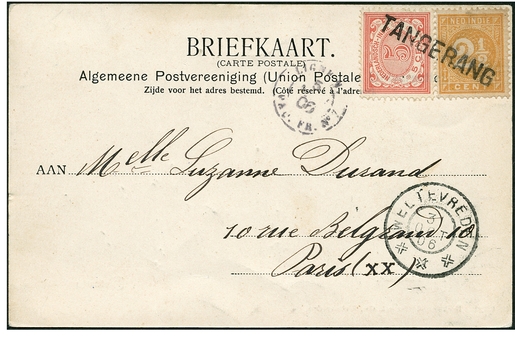 BRIEFKAART.
(CARTE POSTALE)
Algemeene Postvereeniging (Union Postale
Zijde voor het adres bestemd. (Côté réservé à l'adre
NED-INDIE
2½
CENT
TANGERANG
LIGNE N
06
PAQ. FR. Nº
AAN Melle Suzanne Durand
10 rue Belgrand 10
Paris (XX)
WELTEVREDEN
3
06